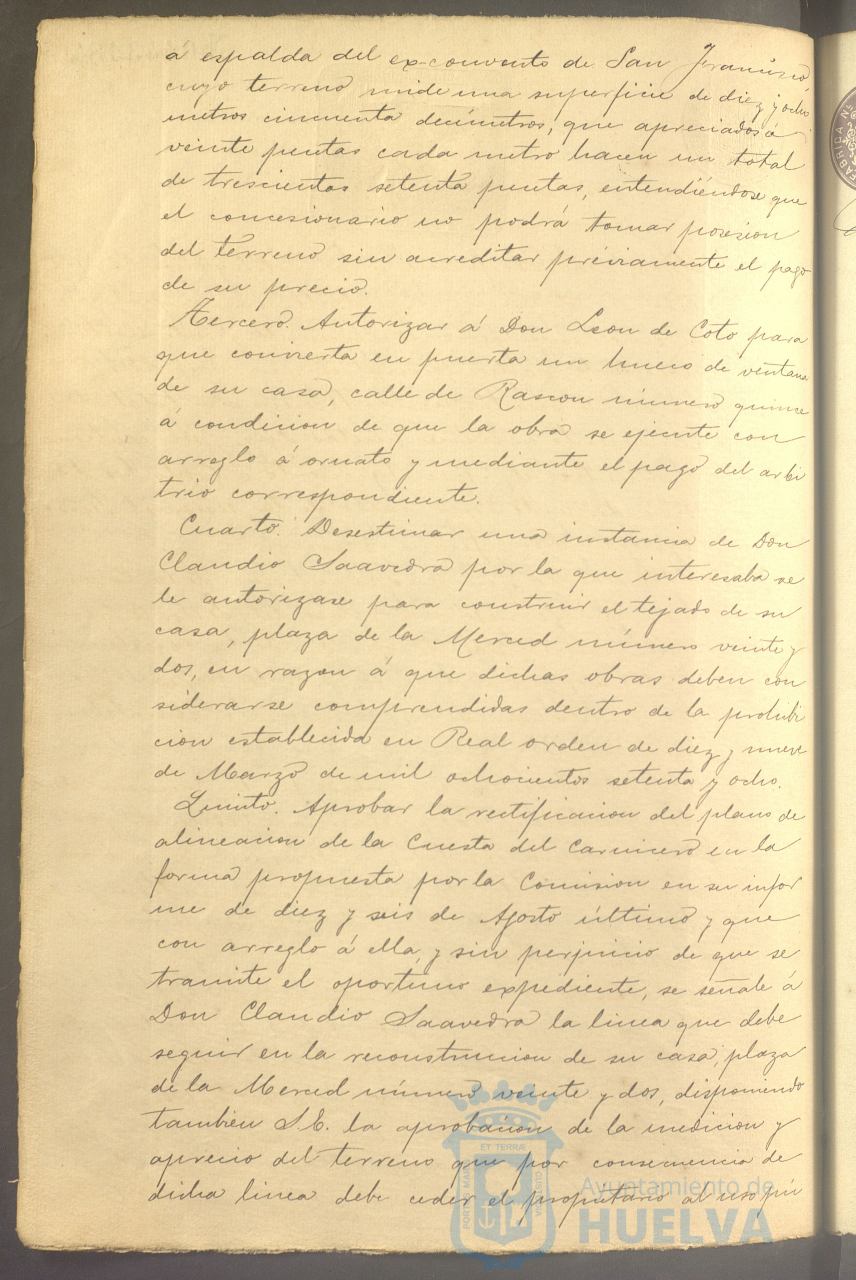 á espalda del ex-convento de San Francisco
cuyo terreno mide una superficie de diez y ocho
metros cincuenta decimetros, que apreciados á
veinte pesetas cada metro hacen un total
de trescientas setenta pesetas, entendiéndose que
el concesionario no podrá tomar posesion
del terreno sin acreditar préviamente el pago
de su precio.
Tercero. Autorizar á Don Leon de Coto para
que convierta en puerta un hueco de ventana
de su casa, calle de Rascon número quince
á condicion de que la obra se ejecute con
arreglo á ornato y mediante el pago del arbi
trio correspondiente.
Cuarto. Desestimar una instancia de Don
Claudio Saavedra por la que interesaba se
le autorizase para construir el tejado de su
casa, plaza de la Merced número veinte y
dos, en razon á que dichas obras deben con
siderarse comprendidas dentro de la prohibi
cion establecida en Real orden de diez y nueve
de Marzo de mil ochocientos setenta y ocho.
Quinto. Aprobar la rectificacion del plano de
alineacion de la Cuesta del Carnicero en la
forma propuesta por la Comision en su infor
me de diez y seis de Agosto último y que
con arreglo á ella, y sin perjuicio de que se
tramite el oportuno expediente, se señale á
Don Claudio Saavedra la linea que debe
seguir en la reconstruccion de su casa, plaza
de la Merced número veinte y dos, disponiendo
tambien S.E. la aprobacion de la medicion y
aprecio del terreno que por consecuencia de
dicha linea debe ceder el propietario al uso pú
FABRICA N
PORTUS MARIS
ET TERRÆ
CUSTODIA
Ayuntamiento de
HUELVA